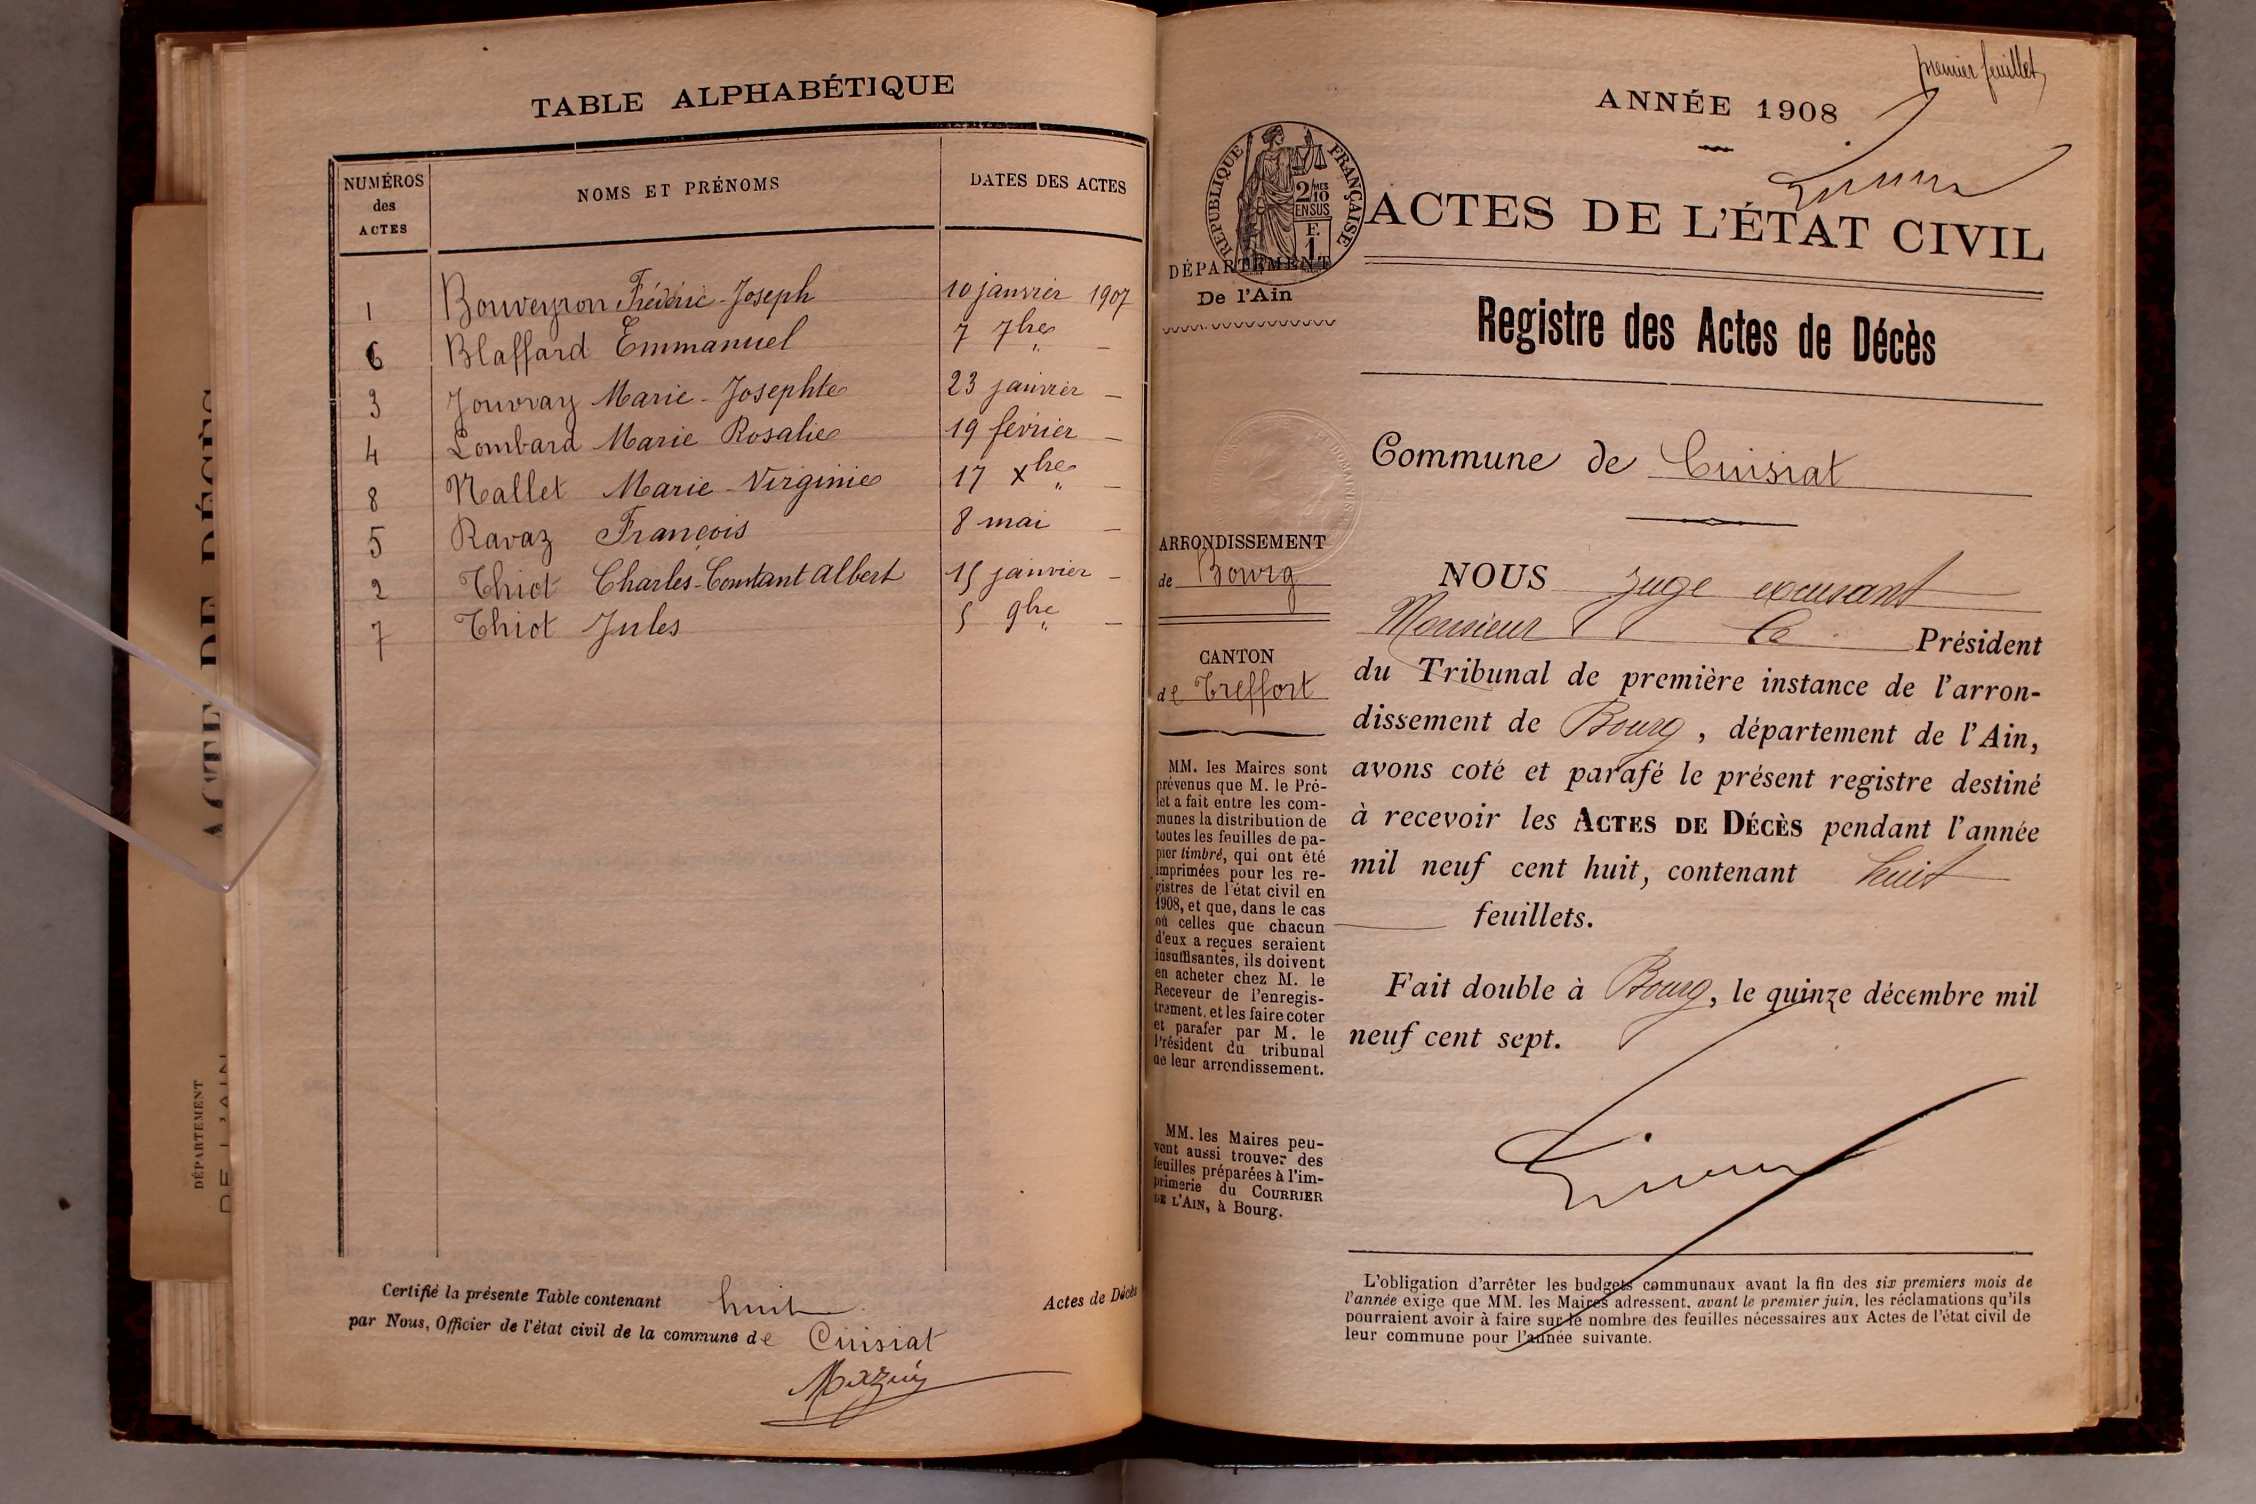 TABLE ALPHABÉTIQUE
NUMÉROS des ACTES
NOMS ET PRÉNOMS
DATES DES ACTES
1 Bouveyron Frédéric-Joseph 10 janvier 1907
6 Blaffard Emmanuel 7 7bre " —
3 Jouvray Marie-Josephte 23 janvier —
4 Lombard Marie Rosalie 19 février —
8 Nallet Marie-Virginie 17 Xbre " —
5 Ravaz François 8 mai —
2 Thiot Charles-Constant Albert 15 janvier —
7 Thiot Jules 5 9bre " —
Certifié la présente Table contenant huit Actes de Décès
par Nous, Officier de l'état civil de la commune de Cuisiat
DÉPARTEMENT
premier feuillet
ANNÉE 1908
RÉPUBLIQUE FRANÇAISE
2/10 MES
EN SUS
F.
1
ACTES DE L'ÉTAT CIVIL
DÉPARTEMENT
De l'Ain
Registre des Actes de Décès
Commune de Cuisiat
ARRONDISSEMENT
de Bourg
CANTON
de Treffort
MM. les Maires sont
prévenus que M. le Pré-
fet a fait entre les com-
munes la distribution de
toutes les feuilles de pa-
pier timbré, qui ont été
imprimées pour les re-
gistres de l'état civil en
1908, et que, dans le cas
où celles que chacun
d'eux a reçues seraient
insuffisantes, ils doivent
en acheter chez M. le
Receveur de l'enregis-
trement, et les faire coter
et parafer par M. le
Président du tribunal
de leur arrondissement.
MM. les Maires peu-
vent aussi trouver des
feuilles préparées à l'im-
primerie du COURRIER
DE L'AIN, à Bourg.
NOUS Juge excusant
Monsieur le Président
du Tribunal de première instance de l'arron-
dissement de Bourg, département de l'Ain,
avons coté et parafé le présent registre destiné
à recevoir les ACTES DE DÉCÈS pendant l'année
mil neuf cent huit, contenant huit
feuillets.
Fait double à Bourg, le quinze décembre mil
neuf cent sept.
L'obligation d'arrêter les budgets communaux avant la fin des six premiers mois de
l'année exige que MM. les Maires adressent, avant le premier juin, les réclamations qu'ils
pourraient avoir à faire sur le nombre des feuilles nécessaires aux Actes de l'état civil de
leur commune pour l'année suivante.